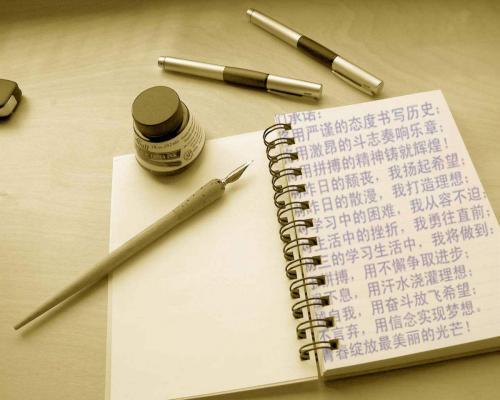 们承诺:
用严谨的态度书写历史;
用激昂的斗志奏响乐章;
用拼搏的精神铸就辉煌!
昨日的颓丧,我扬起希望;
昨日的散漫,我打造理想;
学习中的困难,我从容不迫;
生活中的挫折,我勇往直前;
三的学习生活中,我将做到:
拼搏,用不懈争取进步;
不息,用汗水浇灌理想;
自我,用奋斗放飞希望;
不言弃,用信念实现梦想。
青春绽放最美丽的光芒!